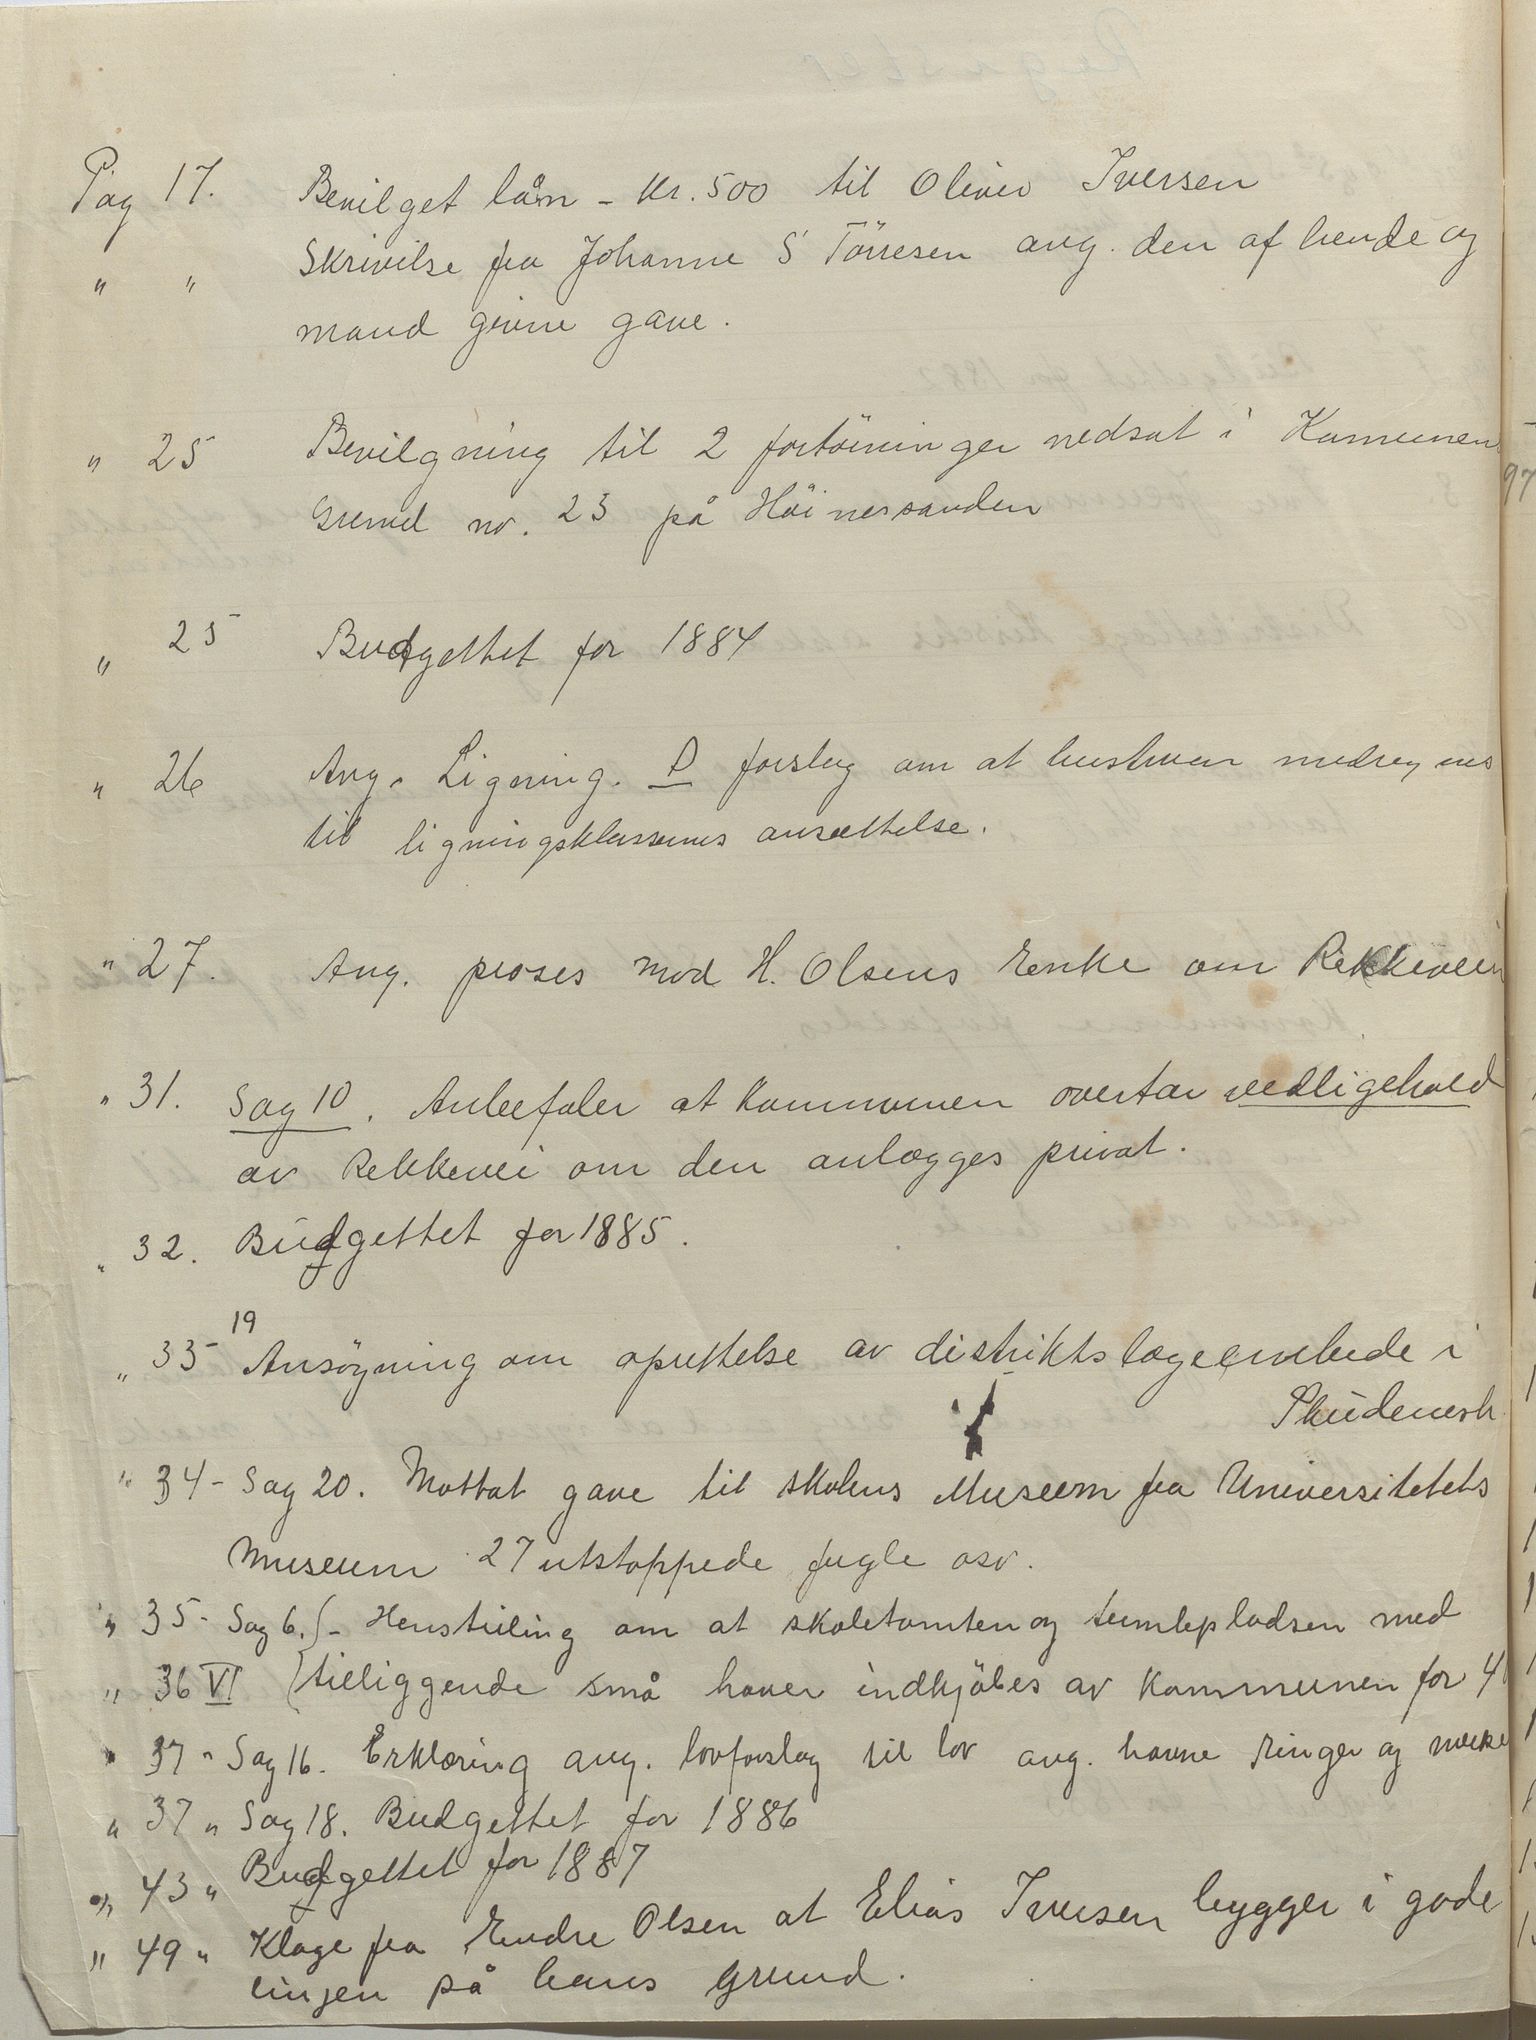 Pag 17. Bevilget lån - kr. 500 til Oliver Iversen
" " Skrivelse fra Johanne S Törresen ang. den af hende og
mand givne gave.
" 25 Bevilgning til 2 fortöininger nedsat i Kommunen
Grund nr. 23 på Höinessanden
" 25 Budgettet for 1884
" 26 Ang. Ligning. forslag om at hustruen medregnes
til ligningsklassernes ansættelse.
" 27. Ang. proses mod H. Olsens Enke om Rekkevein
" 31. Sag 10. Anbefaler at kommunen overtar vedligehold
av Rekkevei om den anlægges privat.
" 32. Budgettet for 1885.
19
" 33 Ansögning om oprettelse av distriktslægeembede i
Skudenesh
" 34 - Sag 20. Mottat gave til skolens Museum fra Universitetets
Museum 27 utstoppede fugle osv.
" 35 - Sag 6. - Henstilling om at skoletomten og tumlepladsen med
" 36 VI tilliggende små haver indkjöbes av kommunen for
" 37 " Sag 16. Erklæring ang. lovforslag til lov ang. havne ringer og merke
" 37 " Sag 18. Budgettet for 1886
" 43 " Budgettet for 1887
" 49 " Klage fra Endre Olsen at Elias Iversen bygger i gade
linjen på hans grund.